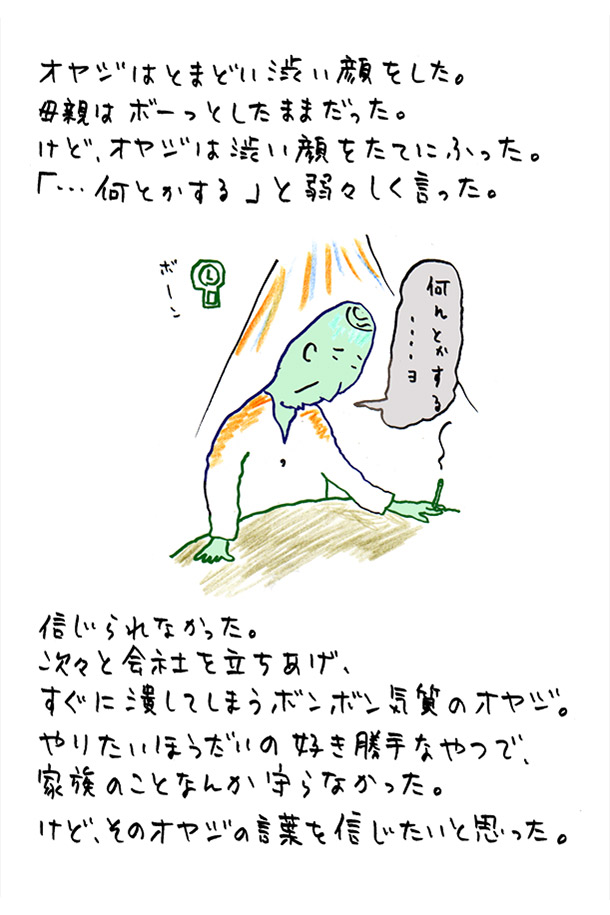 オヤジはとまどい渋い顔をした。
母親はボーっとしたままだった。
けど、オヤジは渋い顔をたてにふった。
「…何とかする」と弱々しく言った。
ボーン
何んとかする
・・・・ヨ
信じられなかった。
次々と会社を立ちあげ、
すぐに潰してしまうボンボン気質のオヤジ。
やりたいほうだいの好き勝手なやつで、
家族のことなんか守らなかった。
けど、そのオヤジの言葉を信じたいと思った。